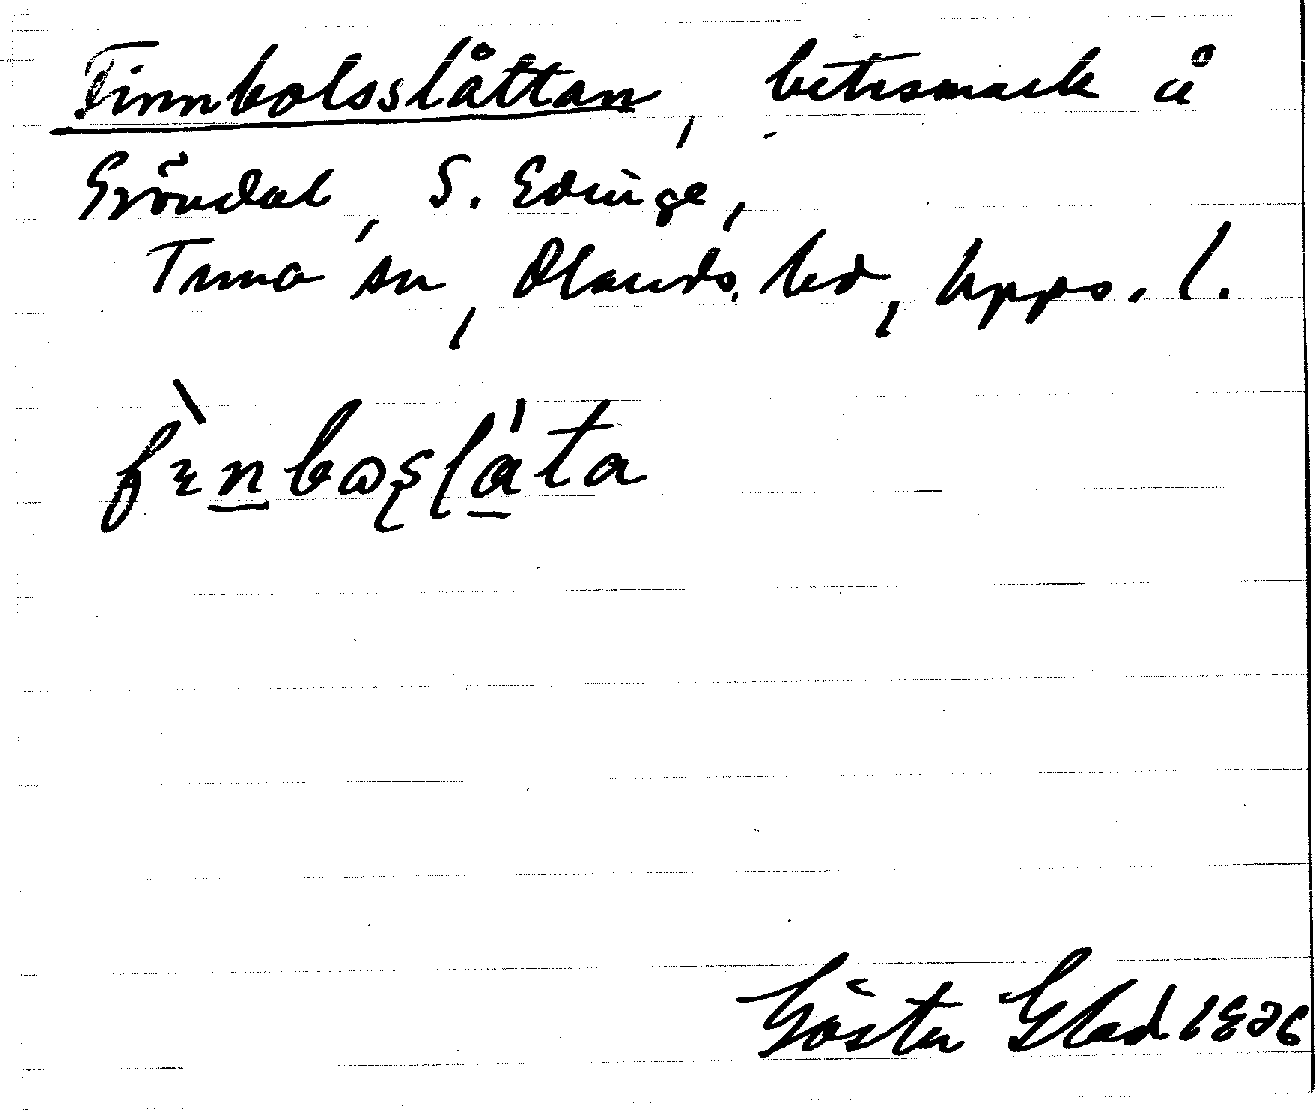 Finnbolsslåttan, betesmark å
Gröndal, S. Edinge,
Tuna sn, Olands hd, Upps. l.
Gösta Glad